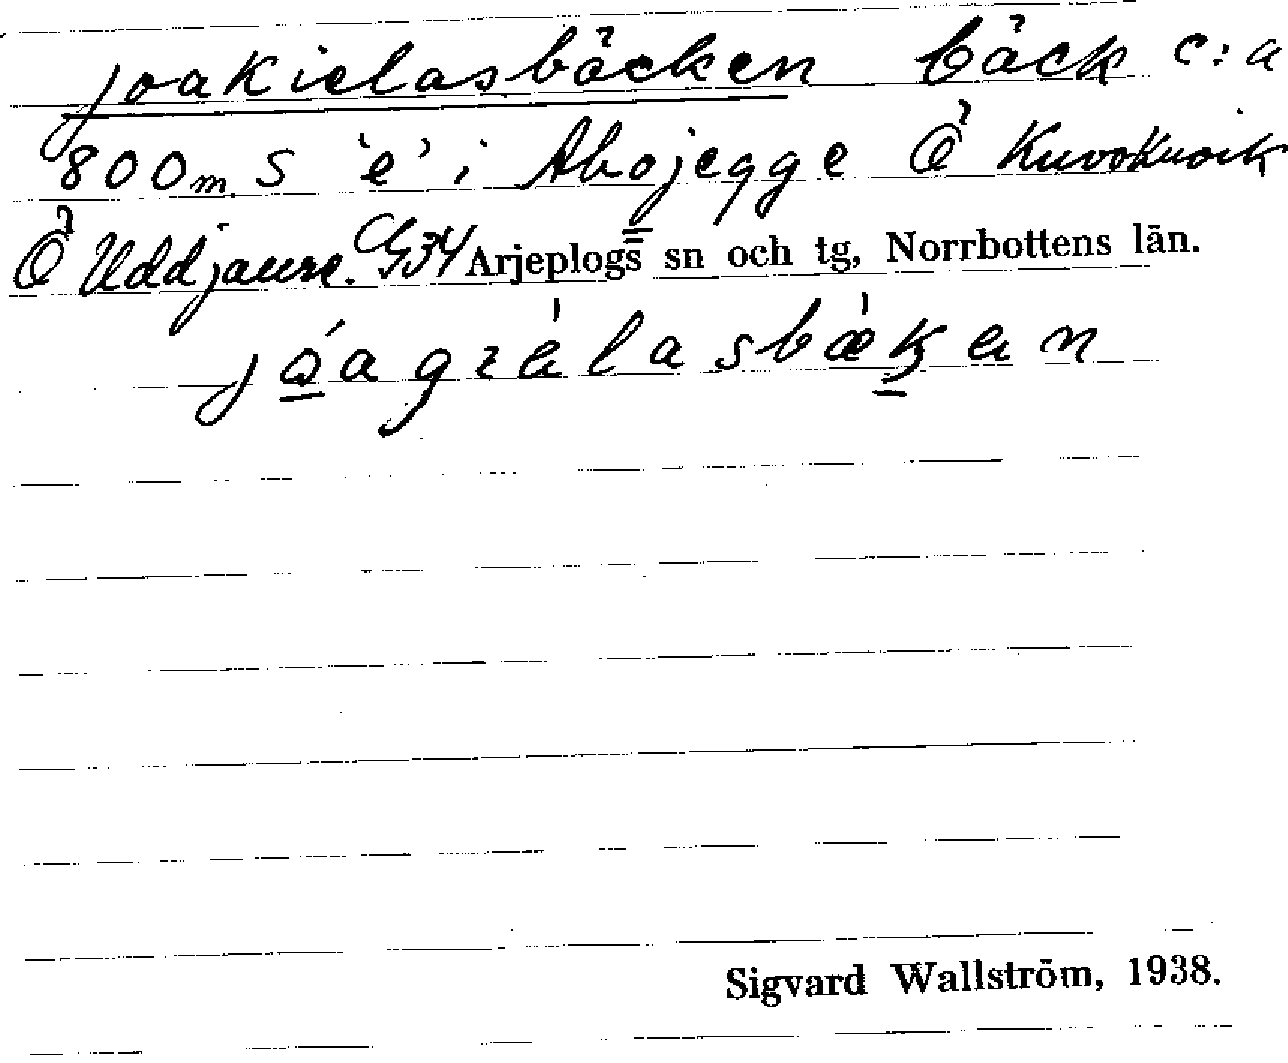 joakielasbäcken bäck c:a
800 m S 'e' i Ahojegge Ö Kuvokuoik
Ö Uddjaure. G34 Arjeplogs sn och tg, Norrbottens län.
Sigvard Wallström, 1938.